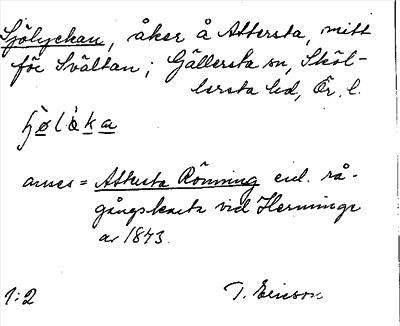 Sjölyckan, åker å Attersta, mitt
för Svältan; Gällersta sn, Sköl-
lersta hd, Ör. l.
anses = Attersta Rönning enl. rå-
gångskarta vid Herminge
av 1873.
1:2
T. Ericson